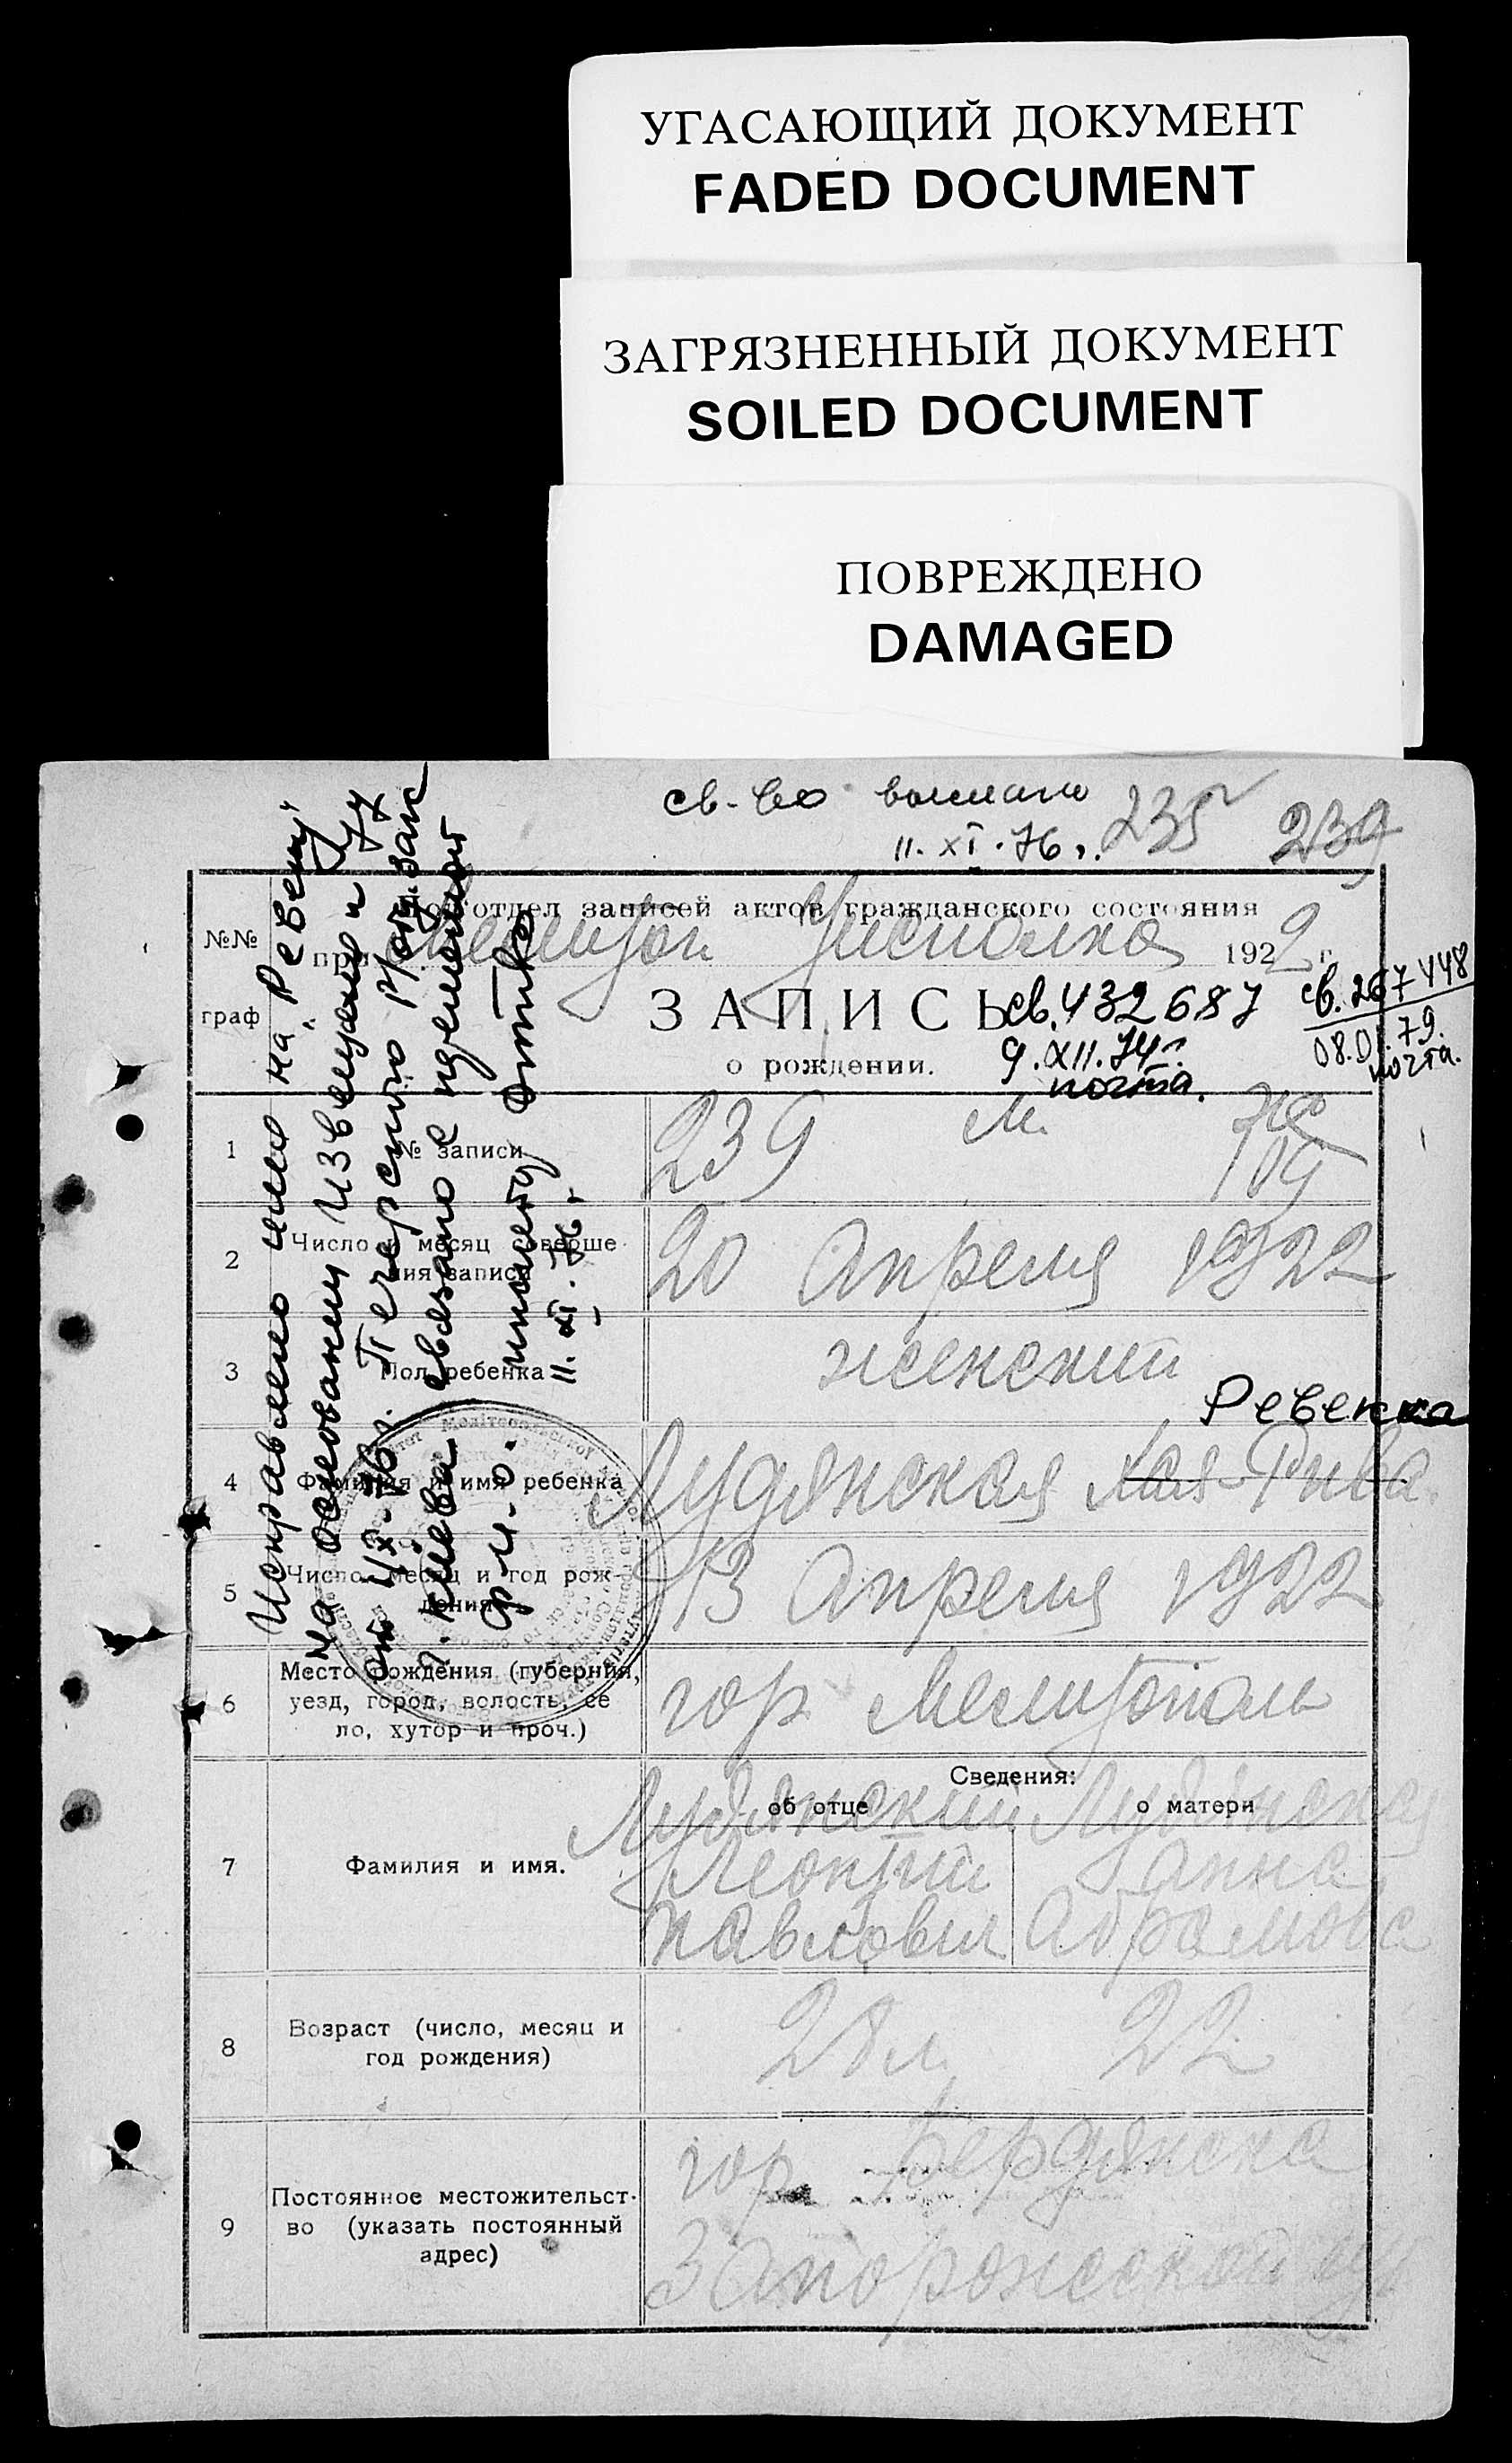 УГАСАЮЩИЙ ДОКУМЕНТ
FADED DOCUMENT
ЗАГРЯЗНЕННЫЙ ДОКУМЕНТ
SOILED DOCUMENT
ПОВРЕЖДЕНО
DAMAGED
св-во выслано
11.XI.76 г.
235
239
Подотдел записей актов гражданского состояния
при 1922 г.
№№
граф
ЗАПИСЬ
о рождении.
св. 432687
9.XII.74 г.
почта.
св. 267448
08.01.79.
почта.
Исправлено имя на „Ревеку"
на основании Извещения
г. Киева
ф.и.о.
11.XI.76 г.
1
№ записи
239
м.
ж
109
2
Число и месяц соверше-
ния записи
20 Апреля 1922
3
Пол ребенка
женский
Ревекка
4
Фамилия и имя ребенка
Лудянская Хая-Рива
5
Число, месяц и год рож-
дения
13 Апреля 1922
6
Место рождения (губерния,
уезд, город, волость, се
ло, хутор и проч.)
гор Мелитополь
Сведения:
об отце
о матери
7
Фамилия и имя.
Лудянский
Леонтий
Павлович
Лудянская
Анна
Абрамовна
8
Возраст (число, месяц и
год рождения)
28 л
22
9
Постоянное местожительст-
во (указать постоянный
адрес)
гор. Бердянска
Запорожской гу